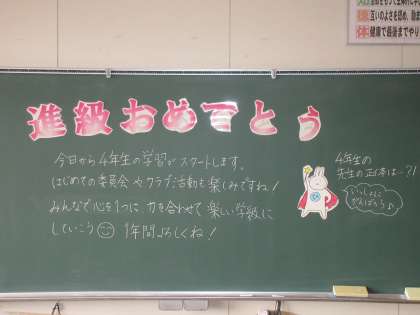 互いのよさを認め、励ま
体 健康で最後までやり
進級おめでとう
今日から4年生の学習がスタートします。
はじめての委員会やクラブ活動も楽しみですね!
みんなで心を1つに力を合わせて楽しい学級に
していこう 1年間よろしくね!
4年生の
先生の正体は…?!
いっしょに
がんばろう♪